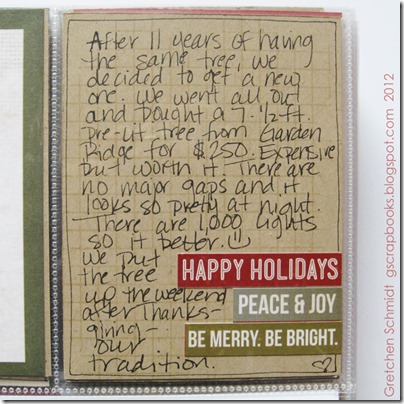 After 11 years of having
the same tree, we
decided to get a new
one. We went all out
and bought a 7 1/2 ft.
pre-lit tree from Garden
Ridge for $250. Expensive
but worth it. There are
no major gaps and it
looks so pretty at night.
There are 1,000 lights
so it better.
We put
the tree
up the weekend
after Thanks-
giving -
our
tradition.
HAPPY HOLIDAYS
PEACE & JOY
BE MERRY. BE BRIGHT.
Gretchen Schmidt gscrapbooks.blogspot.com 2012